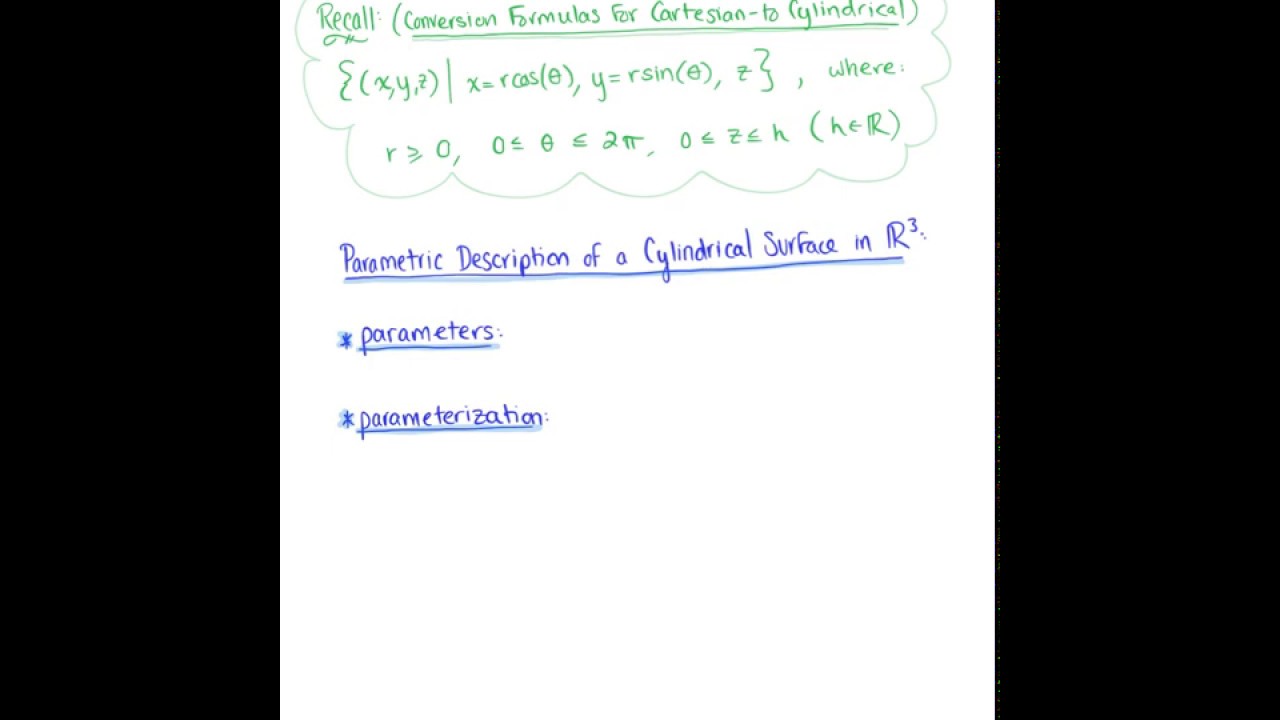 Recall: (Conversion Formulas For Cartesian-to Cylindrical)
{(x,y,z) | x=rcos(θ), y=rsin(θ), z} , where:
r ⩾ 0, 0 ≤ θ ≤ 2π, 0 ≤ z ≤ h (h∈ℝ)
Parametric Description of a Cylindrical Surface in ℝ³:
* parameters:
* parameterization: